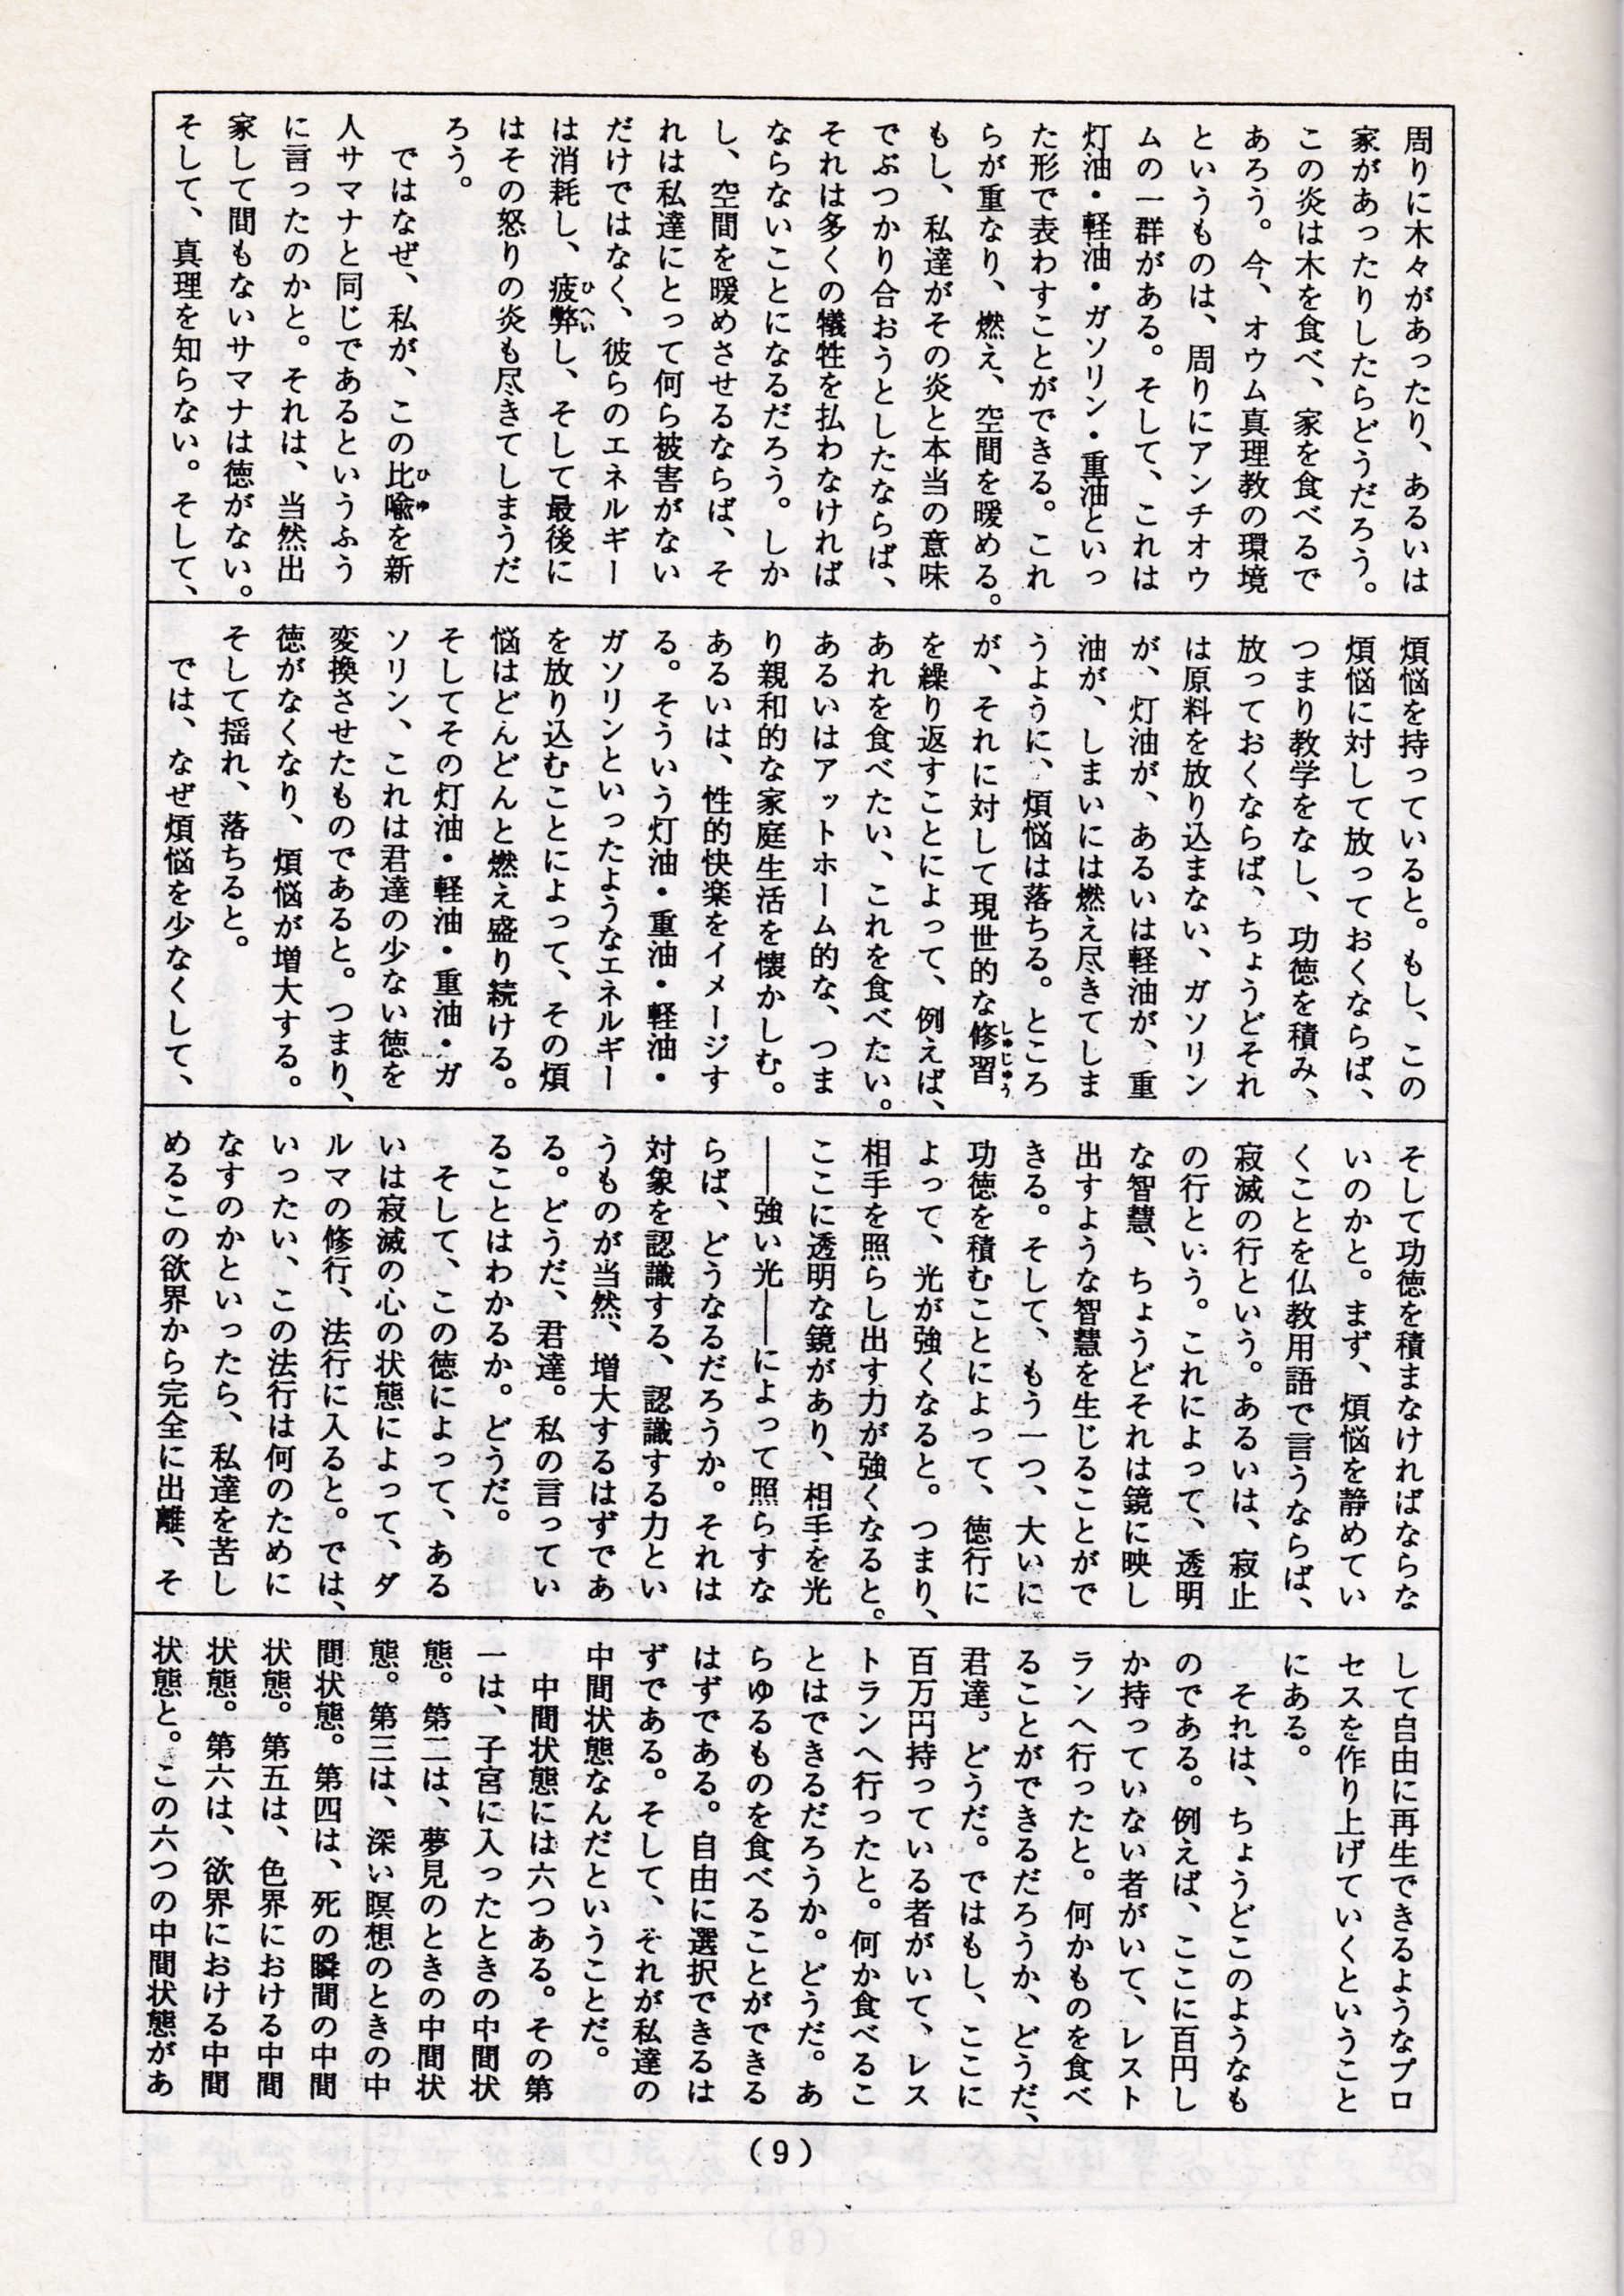 周りに木々があったり、あるいは
家があったりしたらどうだろう。
この炎は木を食べ、家を食べるで
あろう。今、オウム真理教の環境
というものは、周りにアンチオウ
ムの一群がある。そして、これは
灯油・軽油・ガソリン・重油といっ
た形で表わすことができる。これ
らが重なり、燃え、空間を暖める。
もし、私達がその炎と本当の意味
でぶつかり合おうとしたならば、
それは多くの犠牲を払わなければ
ならないことになるだろう。しか
し、空間を暖めさせるならば、そ
れは私達にとって何ら被害がない
だけではなく、彼らのエネルギー
は消耗し、疲弊し、そして最後に
はその怒りの炎も尽きてしまうだ
ろう。
ではなぜ、私が、この比喩を新
人サマナと同じであるというふう
に言ったのかと。それは、当然出
家して間もないサマナは徳がない。
そして、真理を知らない。そして、
煩悩を持っていると。もし、この
煩悩に対して放っておくならば、
つまり教学をなし、功徳を積み、
放っておくならば、ちょうどそれ
は原料を放り込まない、ガソリン
が、灯油が、あるいは軽油が、重
油が、しまいには燃え尽きてしま
うように、煩悩は落ちる。ところ
が、それに対して現世的な修習
を繰り返すことによって、例えば、
あれを食べたい、これを食べたい。
あるいはアットホーム的な、つま
り親和的な家庭生活を懐かしむ。
あるいは、性的快楽をイメージす
る。そういう灯油・重油・軽油・
ガソリンといったようなエネルギー
を放り込むことによって、その煩
悩はどんどんと燃え盛り続ける。
そしてその灯油・軽油・重油・ガ
ソリン、これは君達の少ない徳を
変換させたものであると。つまり、
徳がなくなり、煩悩が増大する。
そして揺れ、落ちると。
では、なぜ煩悩を少なくして、
そして功徳を積まなければならな
いのかと。まず、煩悩を静めてい
くことを仏教用語で言うならば、
寂滅の行という。あるいは、寂止
の行という。これによって、透明
な智慧、ちょうどそれは鏡に映し
出すような智慧を生じることがで
きる。そして、もう一つ、大いに
功徳を積むことによって、徳行に
よって、光が強くなると。つまり、
相手を照らし出す力が強くなると。
ここに透明な鏡があり、相手を光
――強い光――によって照らすな
らば、どうなるだろうか。それは
対象を認識する、認識する力とい
うものが当然、増大するはずであ
る。どうだ、君達。私の言ってい
ることはわかるか。どうだ。
そして、この徳によって、ある
いは寂滅の心の状態によって、ダ
ルマの修行、法行に入ると。では、
いったい、この法行は何のために
なすのかといったら、私達を苦し
めるこの欲界から完全に出離、そ
して自由に再生できるようなプロ
セスを作り上げていくということ
にある。
それは、ちょうどこのようなも
のである。例えば、ここに百円し
か持っていない者がいて、レスト
ランへ行ったと。何かものを食べ
ることができるだろうか、どうだ、
君達。どうだ。ではもし、ここに
百万円持っている者がいて、レス
トランへ行ったと。何か食べるこ
とはできるだろうか。どうだ。あ
らゆるものを食べることができる
はずである。自由に選択できるは
ずである。そして、それが私達の
中間状態なんだということだ。
中間状態には六つある。その第
一は、子宮に入ったときの中間状
態。第二は、夢見のときの中間状
態。第三は、深い瞑想のときの中
間状態。第四は、死の瞬間の中間
状態。第五は、色界における中間
状態。第六は、欲界における中間
状態と。この六つの中間状態があ
(9)